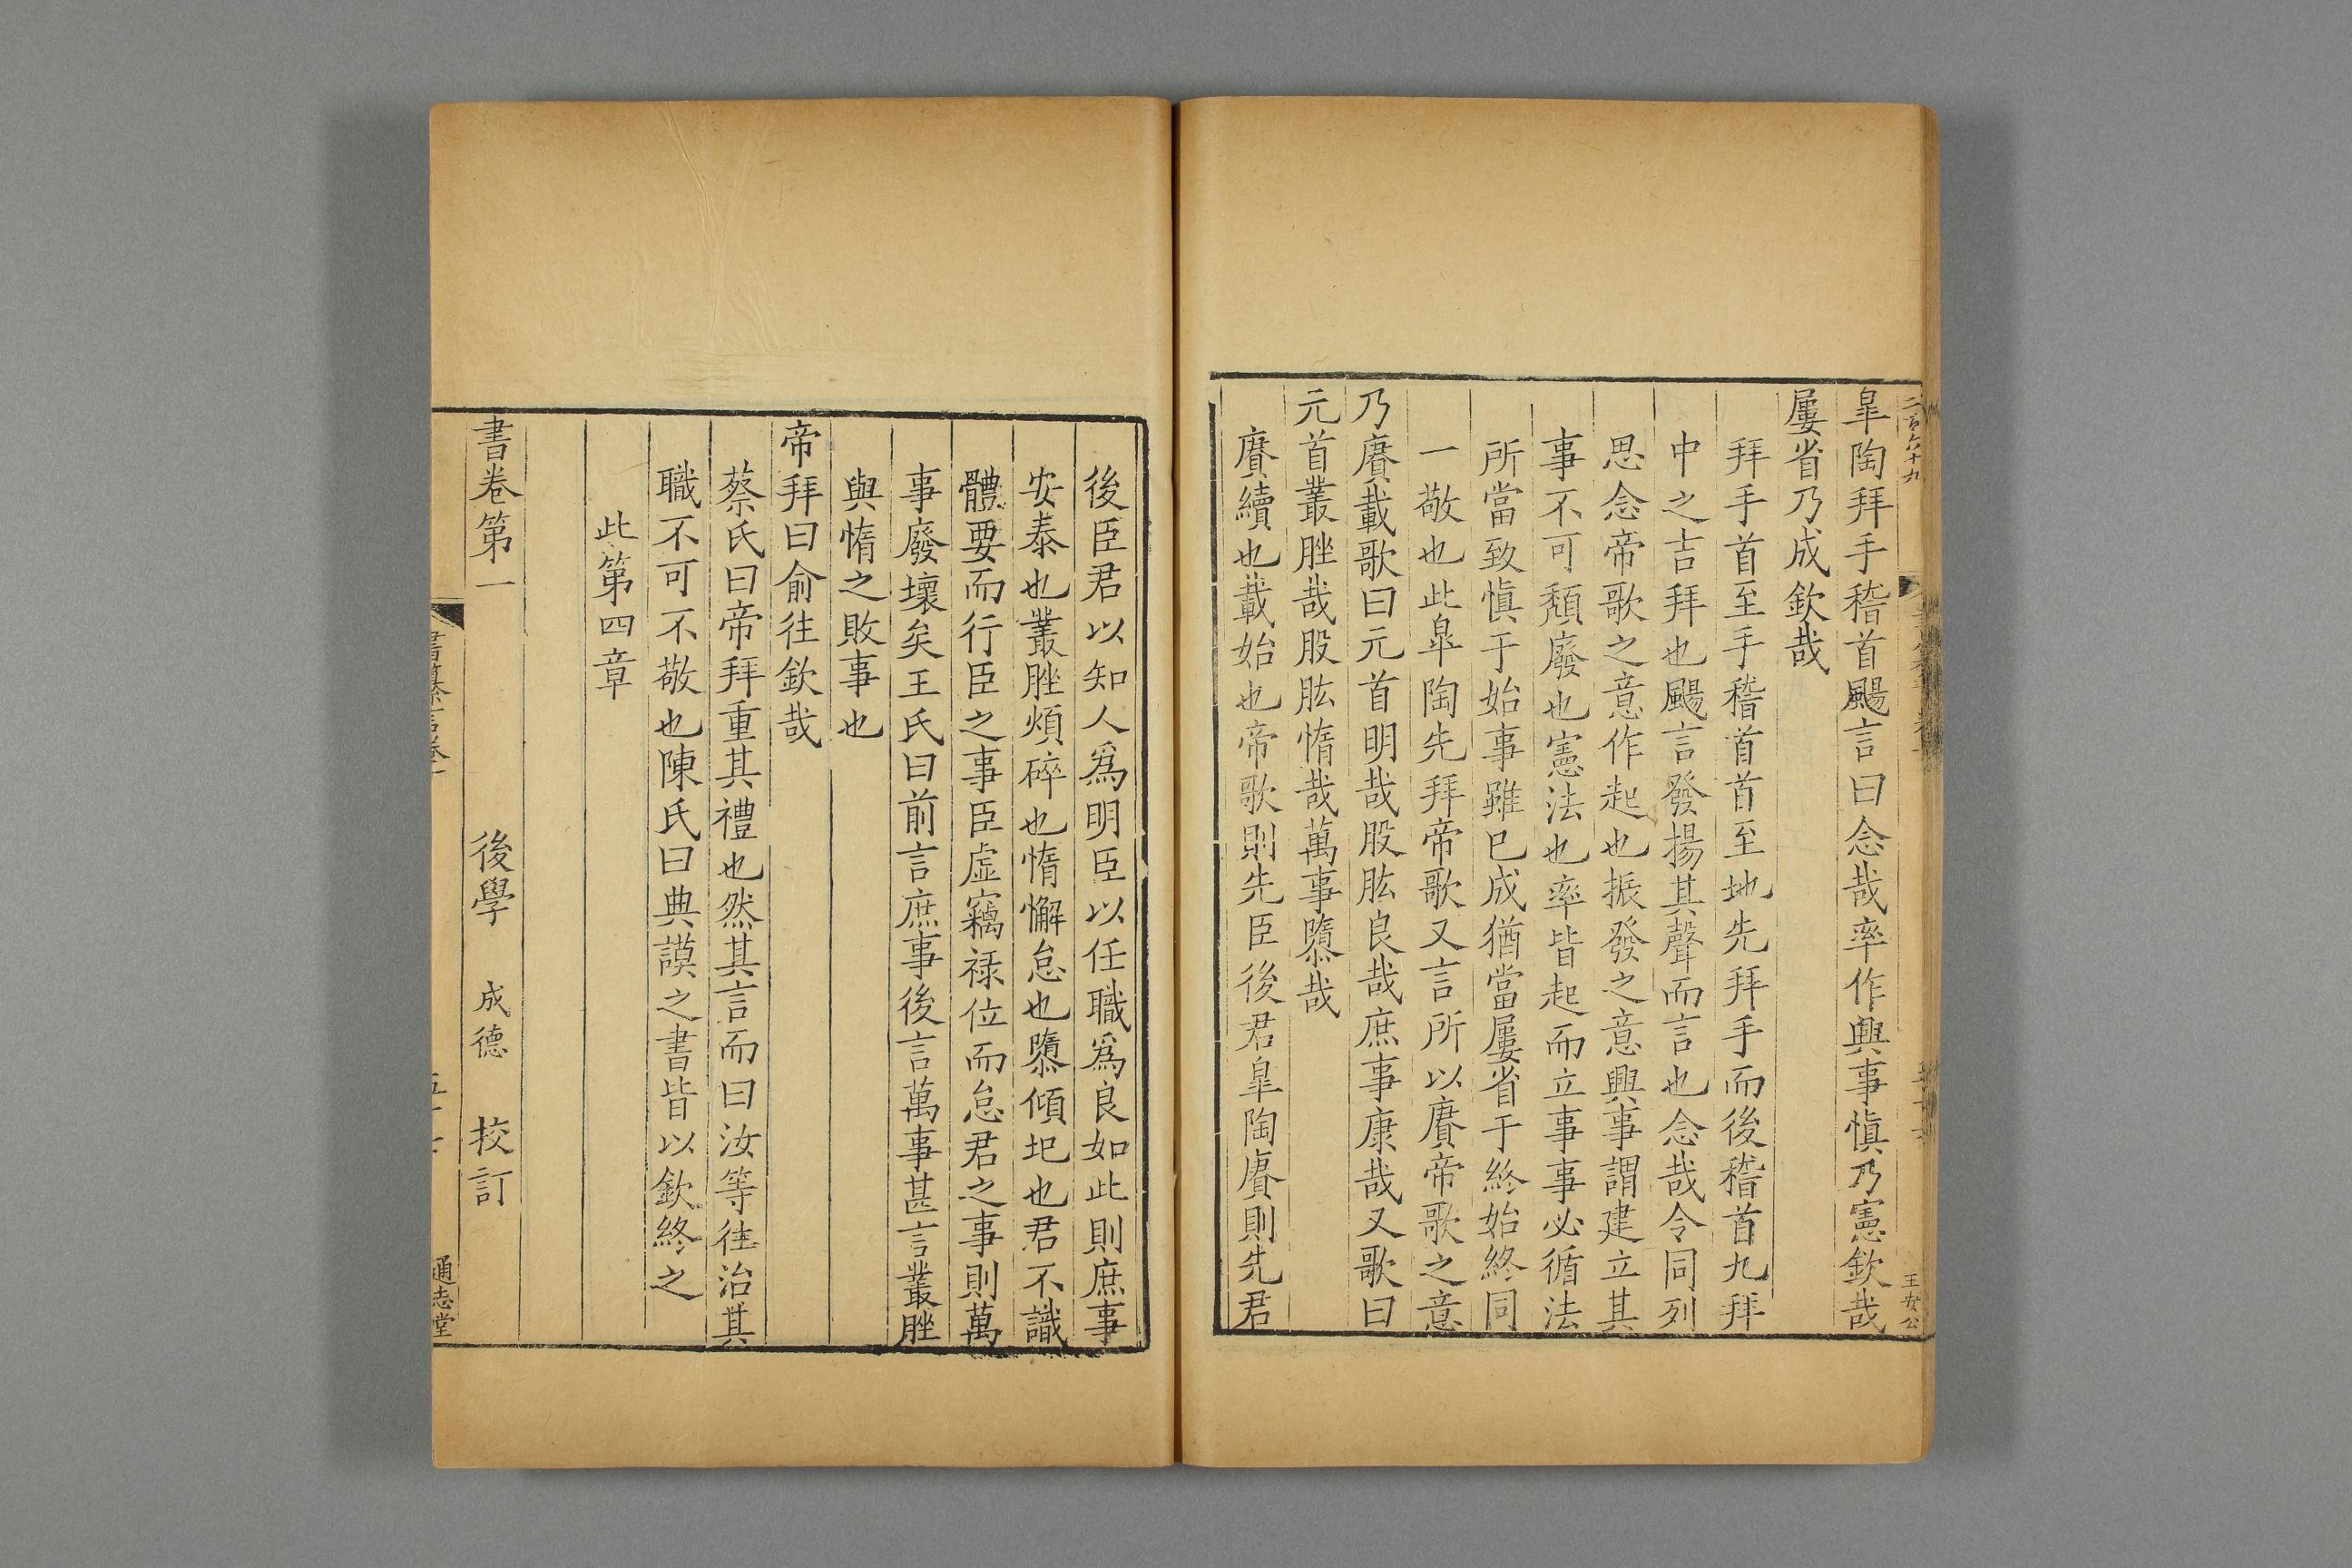 二百六十九
王安公
皐陶拜手稽首颺言曰念哉率作興事愼乃憲欽哉
屢省乃成欽哉
拜手首至手稽首首至地先拜手而後稽首九拜
中之吉拜也颺言發揚其聲而言也念哉令同列
思念帝歌之意作起也振發之意興事謂建立其
事不可頽廢也憲法也率皆起而立事事必循法
所當致愼于始事雖已成猶當屢省于終始終同
一敬也此皐陶先拜帝歌又言所以賡帝歌之意
乃賡載歌曰元首明哉股肱良哉庶事康哉又歌曰
元首叢脞哉股肱惰哉萬事隳哉
賡續也載始也帝歌則先臣後君皐陶賡則先君
後臣君以知人爲明臣以任職爲良如此則庶事
安泰也叢脞煩碎也惰懈怠也隳傾圯也君不識
體要而行臣之事臣虛竊祿位而怠君之事則萬
事廢壞矣王氏曰前言庶事後言萬事甚言叢脞
與惰之敗事也
帝拜曰俞往欽哉
蔡氏曰帝拜重其禮也然其言而曰汝等往治其
職不可不敬也陳氏曰典謨之書皆以欽終之
此第四章
書卷第一 後學 成德 校訂
書纂言卷一 通志堂